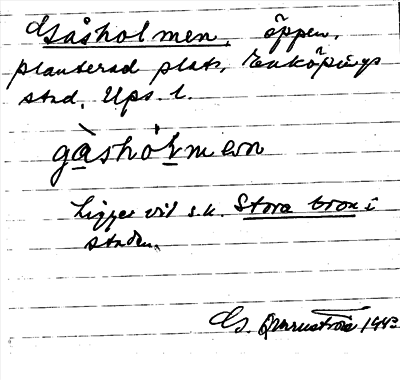 Gåsholmen, öppen,
planterad plats, Enköpings
stad, Ups. l.
gåshòlmen
Ligger vid s.k. Stora bron i
staden.
1943